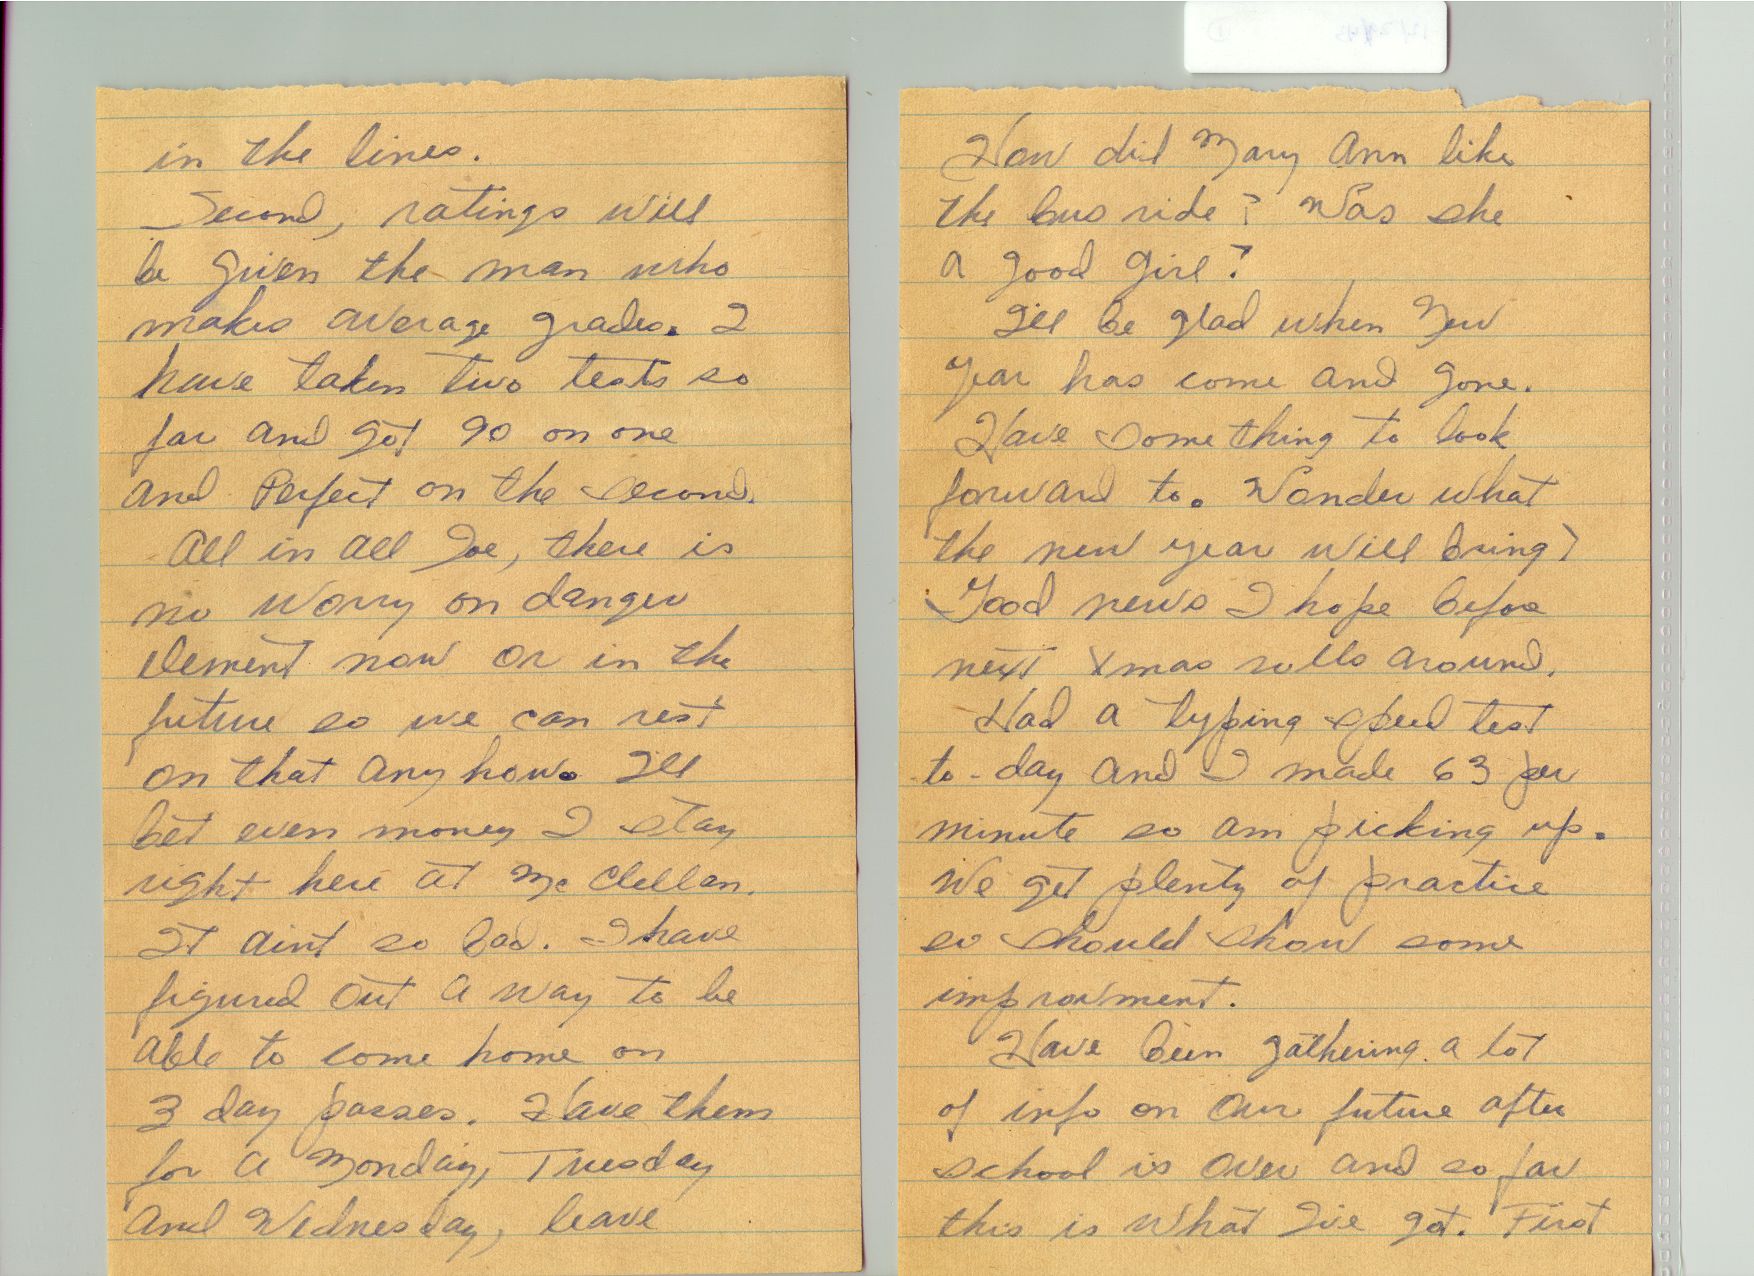 in the lines.
Second, ratings will
be given the man who
makes average grades. I
have taken two tests so
far and got 90 on one
and Perfect on the second.
All in all Joe, there is
no worry on danger
element now or in the
future so we can rest
on that any how. I'll
bet even money I stay
right here at Mc Clellan.
It aint so bad. I have
figured out a way to be
able to come home on
3 day passes. Have them
for a Monday, Tuesday
and Wednesday, leave
How did Mary Ann like
the bus ride? Was she
a good girl?
I'll be glad when New
Year has come and gone.
Have something to look
forward to. Wonder what
the new year will bring?
Good news I hope before
next Xmas rolls around.
Had a typing speed test
to-day and I made 63 per
minute so am picking up.
We get plenty of practice
so should show some
improvment.
Have been gathering a lot
of info on our future after
school is over and so far
this is what I've got. First